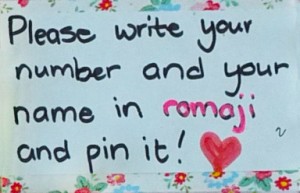 Please write your
number and your
name in romaji
and pin it!